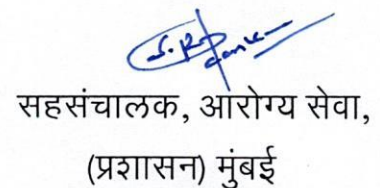 सहसंचालक, आरोग्य सेवा,
(प्रशासन) मुंबई